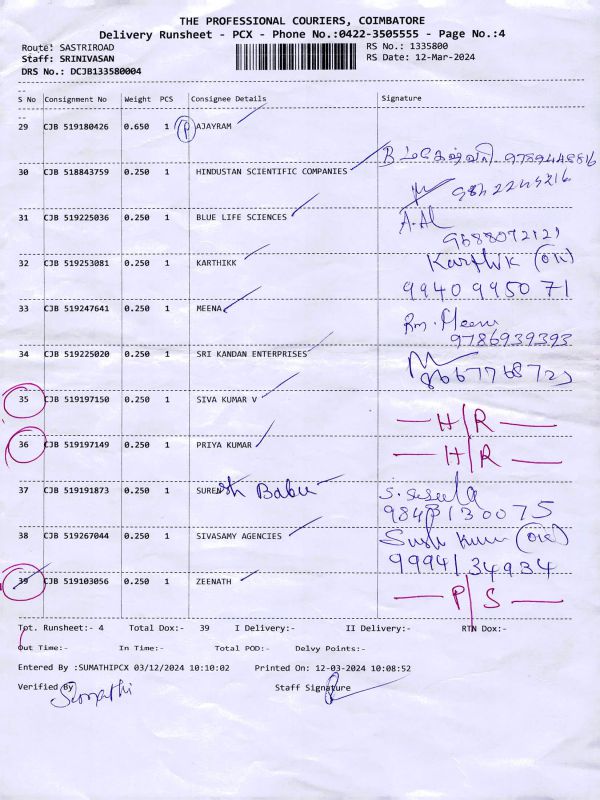 THE PROFESSIONAL COURIERS, COIMBATORE
Delivery Runsheet - PCX - Phone No.:0422-3505555 - Page No.:4
Route: SASTRIROAD RS No.: 1335800
Staff: SRINIVASAN RS Date: 12-Mar-2024
DRS No.: DCJB133580004
S No Consignment No Weight PCS Consignee Details Signature
29 CJB 519180426 0.650 1 P AJAYRAM
9789448816
30 CJB 518843759 0.250 1 HINDUSTAN SCIENTIFIC COMPANIES
31 CJB 519225036 0.250 1 BLUE LIFE SCIENCES A.Al
9688072121
32 CJB 519253081 0.250 1 KARTHIKK Karthik
99409950 71
33 CJB 519247641 0.250 1 MEENA Rm. Meena
9786939393
34 CJB 519225020 0.250 1 SRI KANDAN ENTERPRISES
35 CJB 519197150 0.250 1 SIVA KUMAR V — H/R —
36 CJB 519197149 0.250 1 PRIYA KUMAR — H/R —
37 CJB 519191873 0.250 1 SURENsh Babu S. Suseela
38 CJB 519267044 0.250 1 SIVASAMY AGENCIES
9994134934
39 CJB 519103056 0.250 1 ZEENATH — P/S —
Tot. Runsheet:- 4 Total Dox:- 39 I Delivery:- II Delivery:- RTN Dox:-
Out Time:- In Time:- Total POD:- Delvy Points:-
Entered By :SUMATHIPCX 03/12/2024 10:10:02 Printed On: 12-03-2024 10:08:52
Verified By Sumathi Staff Signature